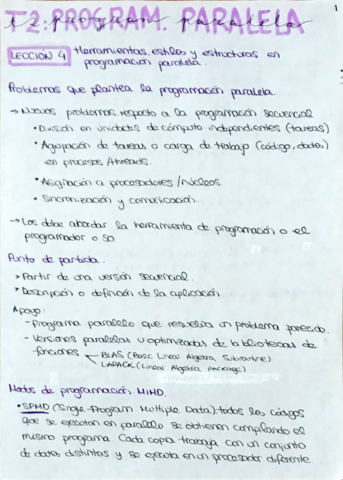 1
T2: PROGRAM. PARALELA
LECCIÓN 4 Herramientas, estilos y estructuras en
programación paralela.
Problemas que plantea la programación paralela.
→ Nuevos problemas respecto a la programación secuencial
• División en unidades de cómputo independientes (tareas)
• Agrupación de tareas o carga de trabajo (código, datos)
en procesos/threads.
• Asignación a procesadores/núcleos.
• Sincronización y comunicación.
→ Los debe abordar la herramienta de programación o el
programador o SO
Punto de partida.
> Partir de una versión secuencial.
> Descripción o definición de la aplicación
Apoyo:
- Programa paralelo que resuelva un problema parecido.
- Versiones paralelas u optimizadas de bibliotecas de
funciones BLAS (Basic Linear Algebra Subroutine)
LAPACK (Linear Algebra Package)
Modos de programación MIMD.
• SPMD (Single-Program Multiple Data): todos los códigos
que se ejecutan en paralelo se obtienen compilando el
mismo programa. Cada copia trabaja con un conjunto
de datos distintos y se ejecuta en un procesador diferente